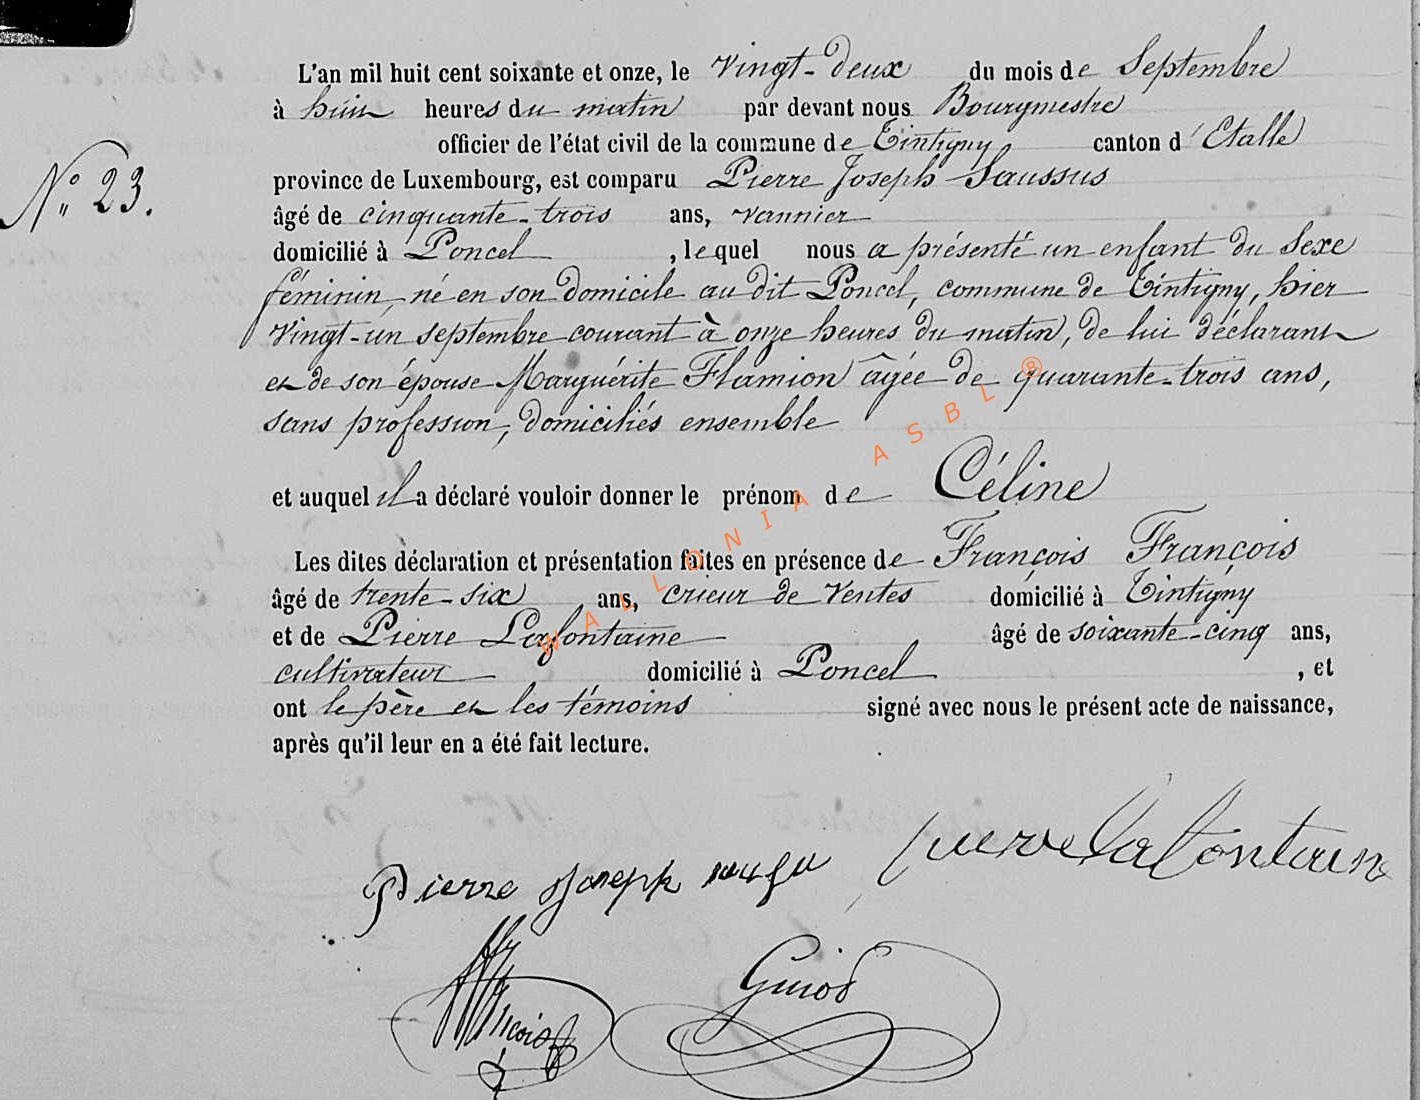 L'an mil huit cent soixante et onze, le vingt-deux du mois de Septembre
à huit heures du matin par devant nous Bourgmestre
officier de l'état civil de la commune de Tintigny canton d'Etalle
N° 23.
province de Luxembourg, est comparu Pierre Joseph Saussus
âgé de cinquante-trois ans, vannier
domicilié à Poncel, lequel nous a présenté un enfant du Sexe
féminin, né en son domicile au dit Poncel, commune de Tintigny, hier
vingt-un septembre courant à onze heures du matin, de lui déclarant
et de son épouse Marguérite Flamion âgée de quarante-trois ans,
sans profession, domiciliés ensemble
et auquel il a déclaré vouloir donner le prénom de Céline
Les dites déclaration et présentation faites en présence de François François
âgé de trente-six ans, crieur de ventes domicilié à Tintigny
et de Pierre Lafontaine âgé de soixante-cinq ans,
cultivateur domicilié à Poncel, et
ont le père et les témoins signé avec nous le présent acte de naissance,
après qu'il leur en a été fait lecture.
WALLONIA ASBL ®
Pierre Joseph
pierre lafontain
François
Guiot